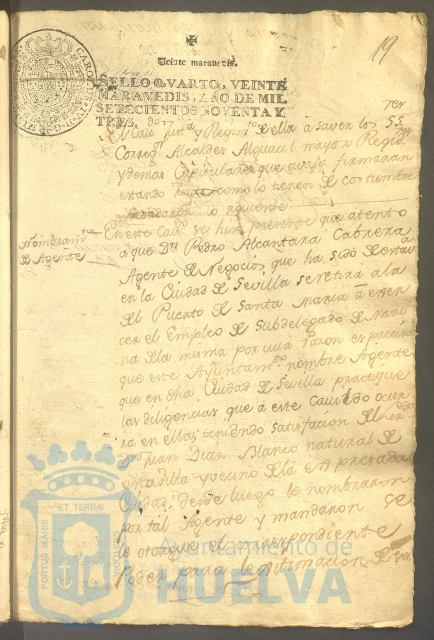 19
Veinte marauedis.
SELLO QVARTO, VEINTE
MARAVEDIS, AÑO DE MIL
SETECIENTOS NOVENTA Y
TRES.
y Regim.to de ella a saver los SS.res
Correg.r Alcaldes Alguacil mayor Regid.
y demas Capitulares que avajo firmaran
estando como lo tienen de costumbre
acordaron lo siguiente
Nombram.to
de Agente
En este Cav.do se hizo presente que atento
a que Dn. Pedro Alcantara Cabrera
Agente de Negocios, que ha sido de esta
en la Ciudad de Sevilla se retira a la
del Puerto de Santa Maria a exer
cer el Empleo de Subdelegado de Mari
na de la misma por cuia razon es preciso
que este Ayuntam.to nombre Agente
que en dha. Ciudad de Sevilla practique
las diligencias que á este Cavildo ocur
ra en ellas; teniendo satisfacion de
Dn. Juan Diaz Blanco natural de
y vecino de la expresada
Ciudad, desde luego le nombraron
por tal Agente y mandaron se
le otorgue el correspondiente
Poder para lexitimacion de
PORTUS MARIS
ET TERRÆ
CUSTODIA
Ayuntamiento de
HUELVA